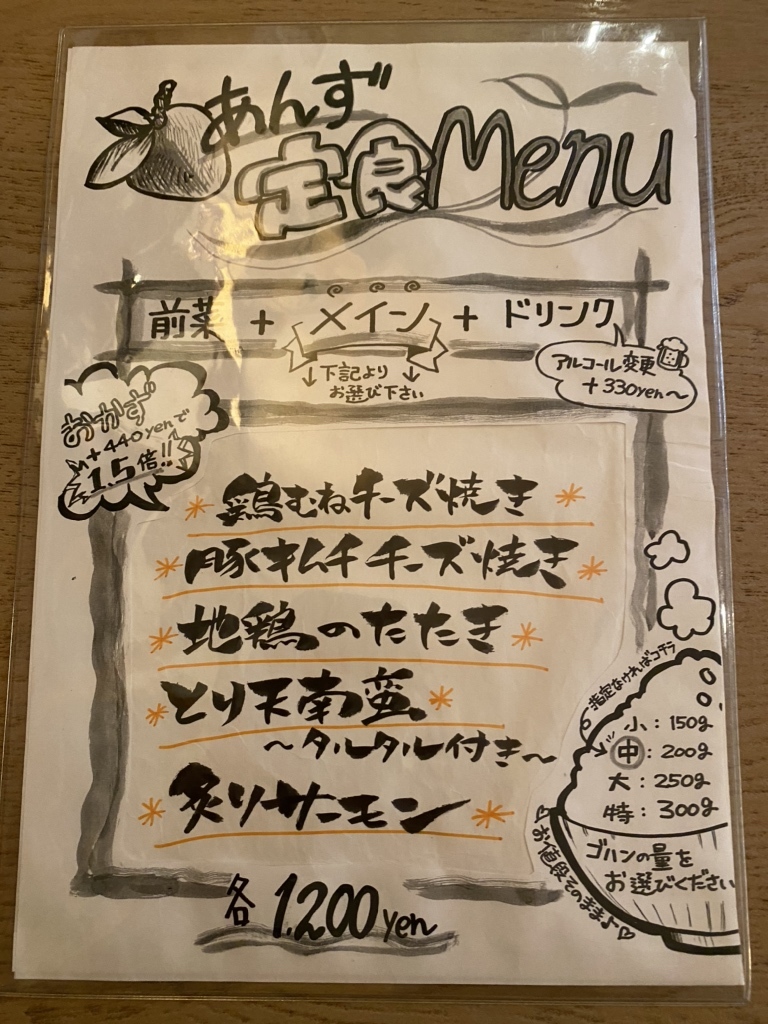 あんず
定食Menu
前菜 + メイン + ドリンク
↓下記より↓
お選び下さい
アルコール変更
+330yen〜
おかず
+440yenで
1.5倍!!
鶏むねチーズ焼き
豚キムチチーズ焼き
地鶏のたたき
とり天南蛮
〜タルタル付き〜
炙りサーモン
各 1,200yen
指定なければコチラ
小:150g
中:200g
大:250g
特:300g
ゴハンの量を
お選びください
お値段そのまま♪♡